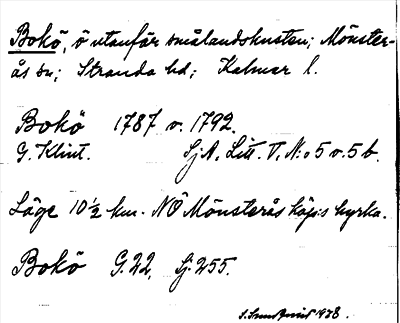 Bokö, ö utanför smålandskusten; Mönster-
ås sn; Stranda hd; Kalmar l.
Bokö 1787 o. 1792.
G. Klint. SjA, Litt. V, N:o 5 o. 5 b.
Läge 10 1/2 km. NÖ Mönsterås köp:s kyrka.
Bokö G. 22, Sj. 255.
1978.